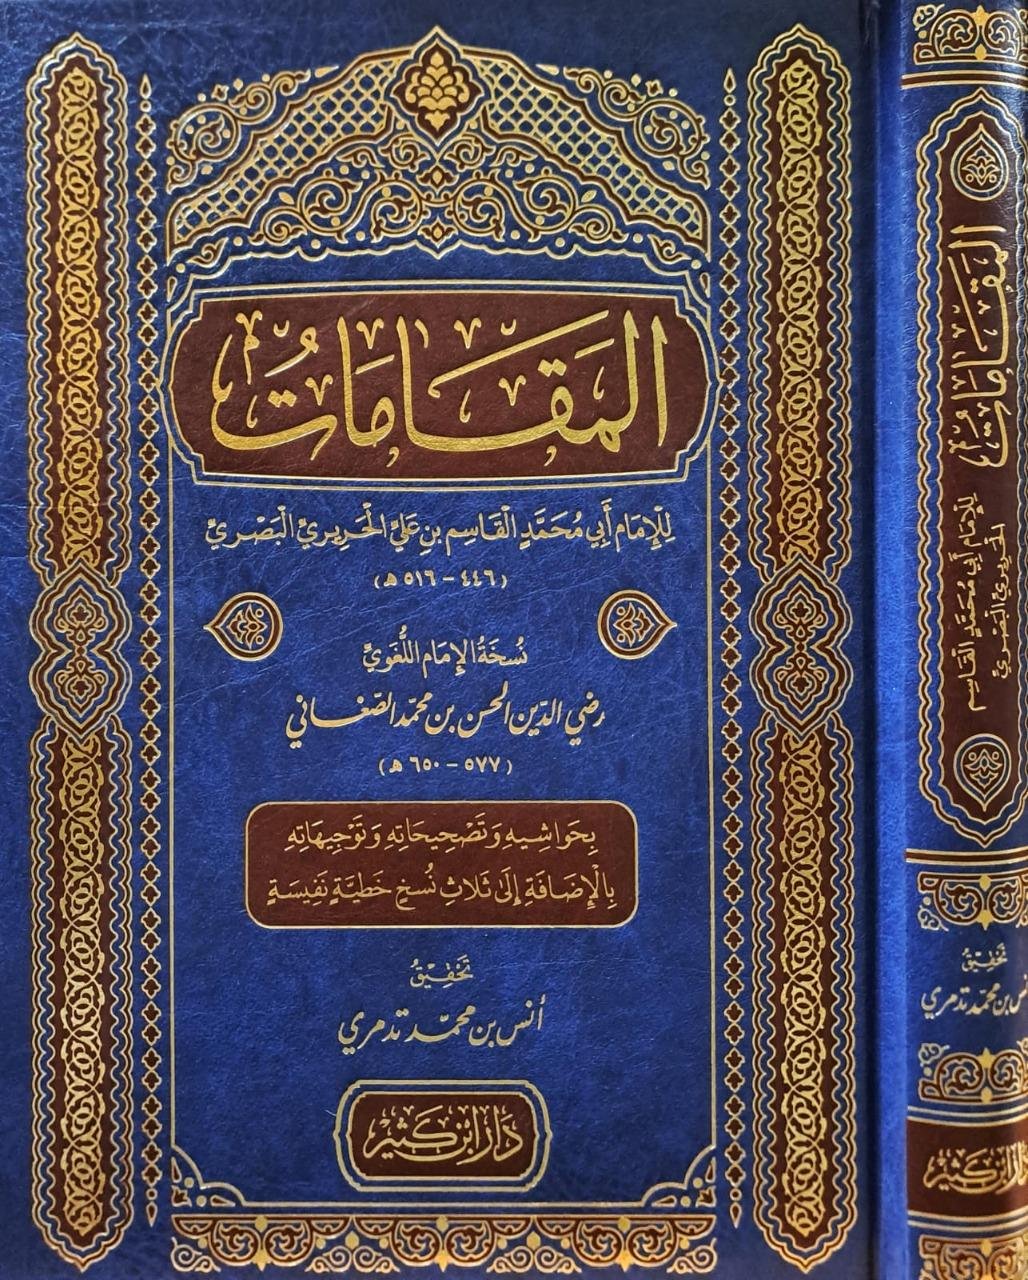 المَقَامَاتُ
لِلإِمَامِ أَبِي مُحَمَّدٍ القَاسِمِ بنِ عَلِيٍّ الحَرِيرِيِّ البَصْرِيِّ
(٤٤٦ - ٥١٦ هـ)
نُسْخَةُ الإِمَامِ اللُّغَوِيِّ
رضي الدين الحسن بن محمد الصّغاني
(٥٧٧ - ٦٥٠ هـ)
بِحَوَاشِيهِ وَتَصْحِيحَاتِهِ وَتَوْجِيهَاتِهِ
بِالإِضَافَةِ إِلَى ثَلَاثِ نُسَخٍ خَطِّيَّةٍ نَفِيسَةٍ
تَحْقِيقُ
أنس بن محمد تدمري
دَارُ ابْن كَثِيْر
المَقَامَاتُ
لِلإِمَامِ أَبِي مُحَمَّدٍ القَاسِمِ
الحَرِيرِيِّ البَصْرِيِّ
تَحْقِيقُ
أنس بن محمد تدمري
دَارُ ابْن كَثِيْر